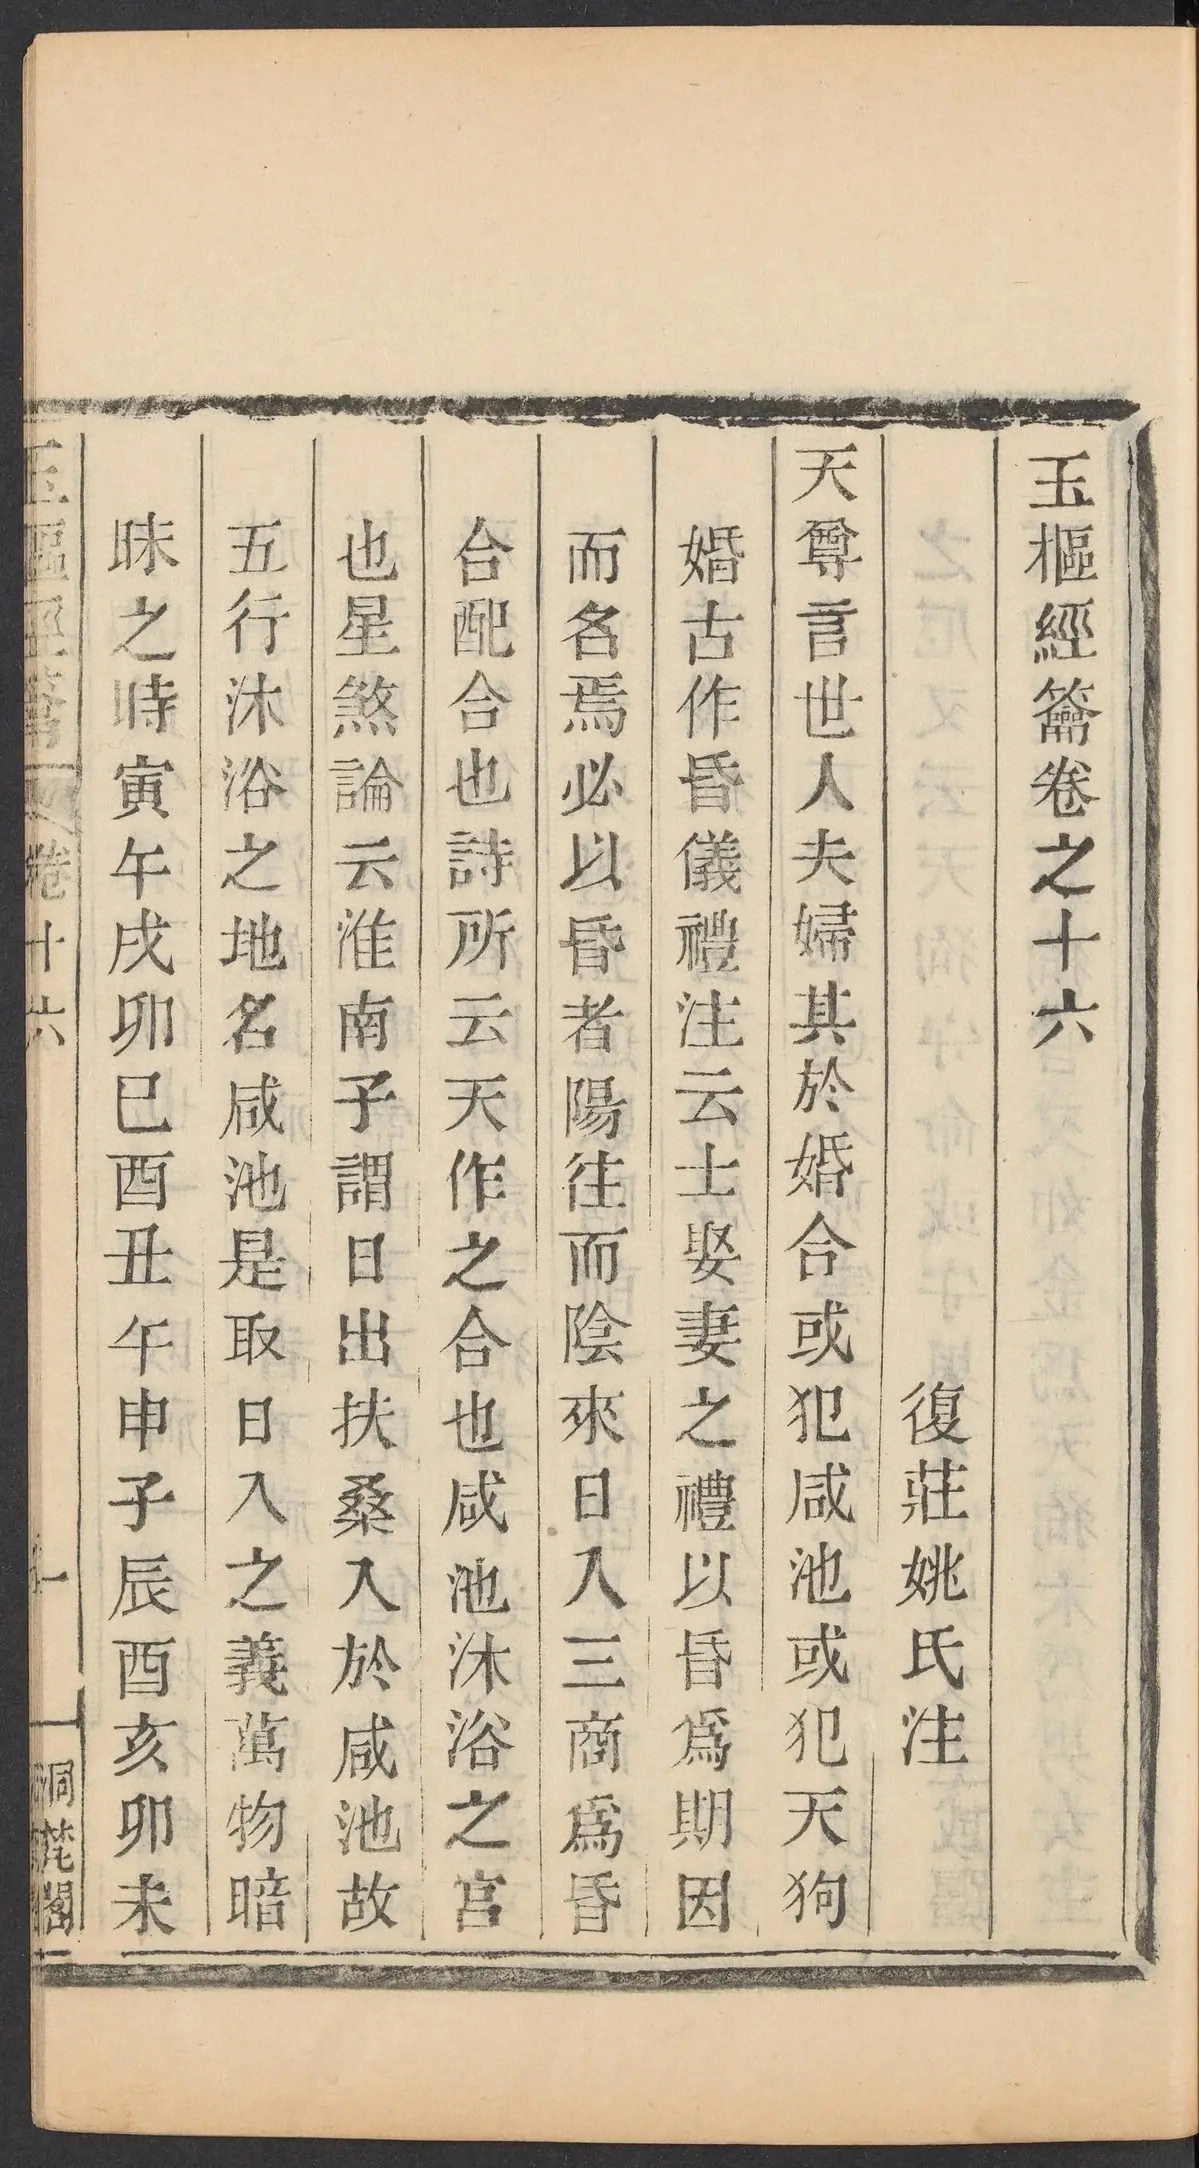 玉樞經籥卷之十六
復莊姚氏注
天尊言世人夫婦其於婚合或犯咸池或犯天狗
婚古作昏儀禮注云士娶妻之禮以昏爲期因
而名焉必以昏者陽往而陰來日入三商爲昏
合配合也詩所云天作之合也咸池沐浴之宮
也星煞論云淮南子謂日出扶桑入於咸池故
五行沐浴之地名咸池是取日入之義萬物暗
昧之時寅午戌卯巳酉丑午申子辰酉亥卯未
玉樞經籥 卷十六 一